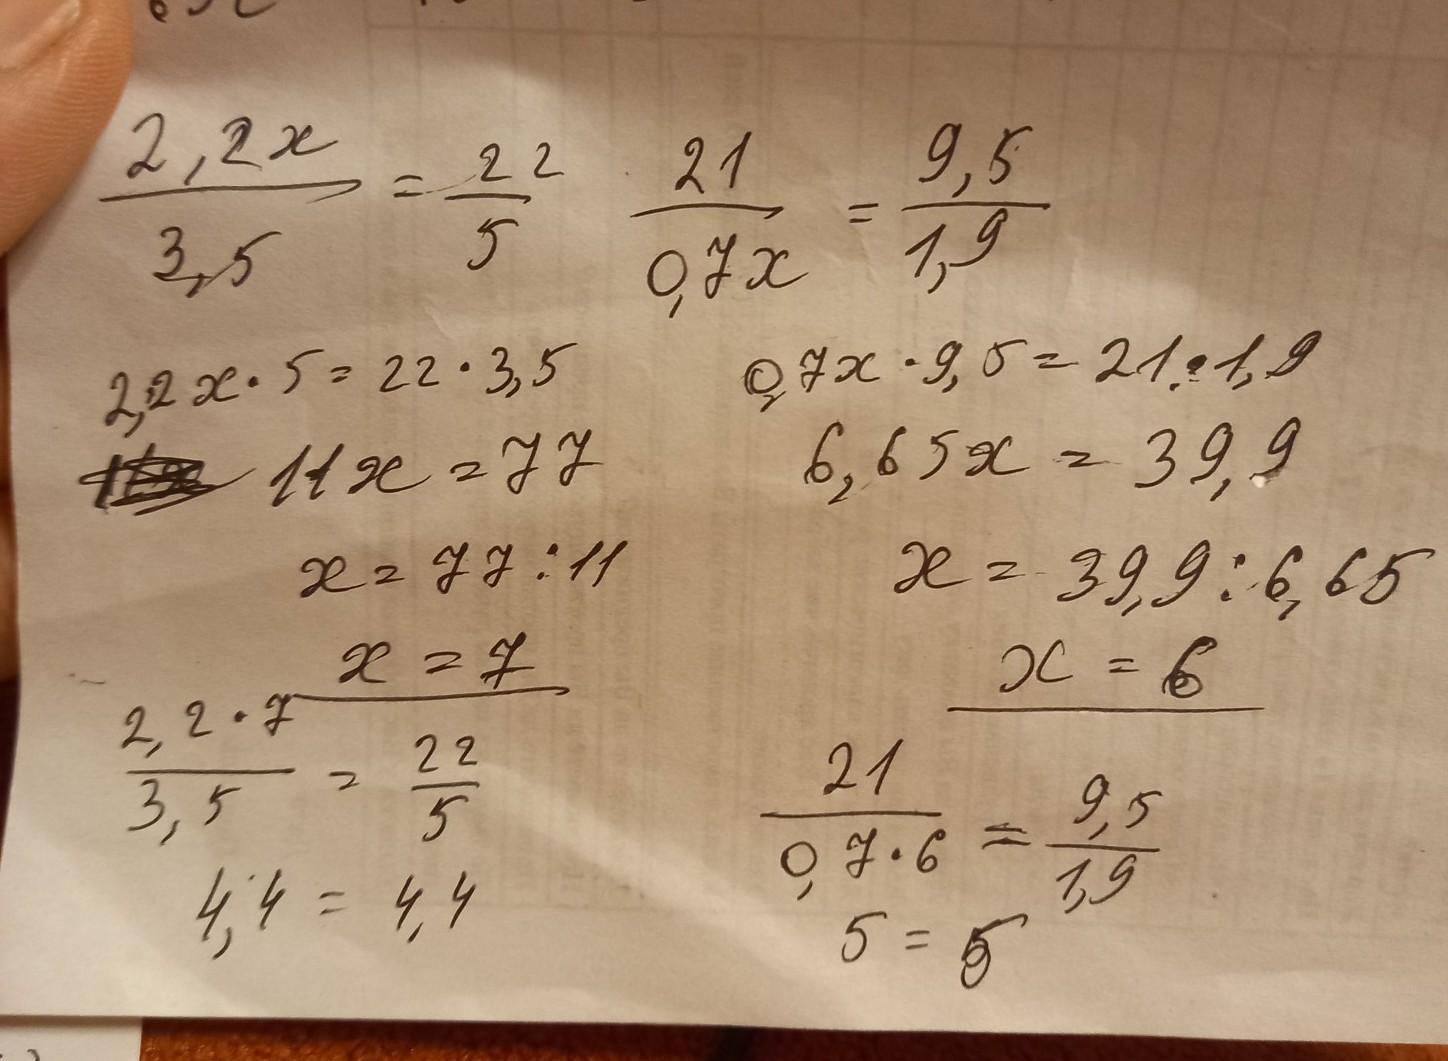 2,2x/3,5 = 22/5
2,2x · 5 = 22 · 3,5
11x = 77
x = 77 : 11
x = 7
2,2 · 7/3,5 = 22/5
4,4 = 4,4
21/0,7x = 9,5/1,9
0,7x · 9,5 = 21 · 1,9
6,65x = 39,9
x = 39,9 : 6,65
x = 6
21/0,7 · 6 = 9,5/1,9
5 = 5